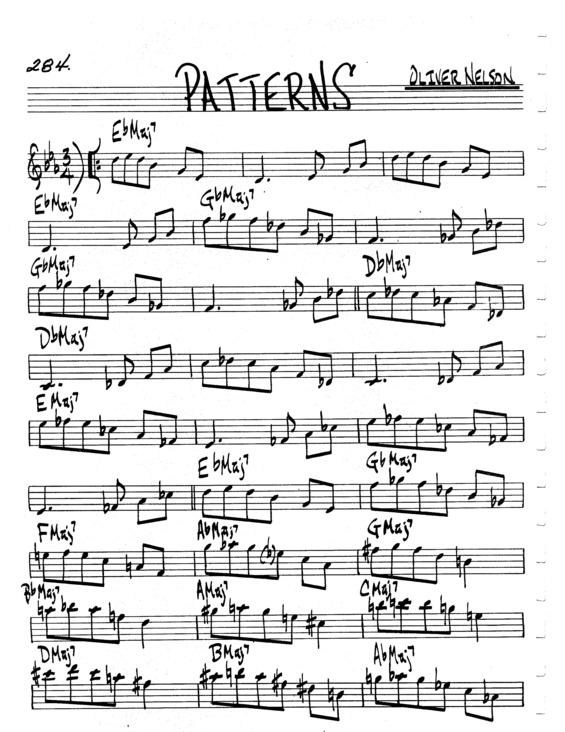 284.
PATTERNS
OLIVER NELSON
EbMaj7
3/4
EbMaj7 GbMaj7
GbMaj7 DbMaj7
DbMaj7
EMaj7
EbMaj7 GbMaj7
FMaj7 AbMaj7 GMaj7
BbMaj7 AMaj7 CMaj7
DMaj7 BMaj7 AbMaj7